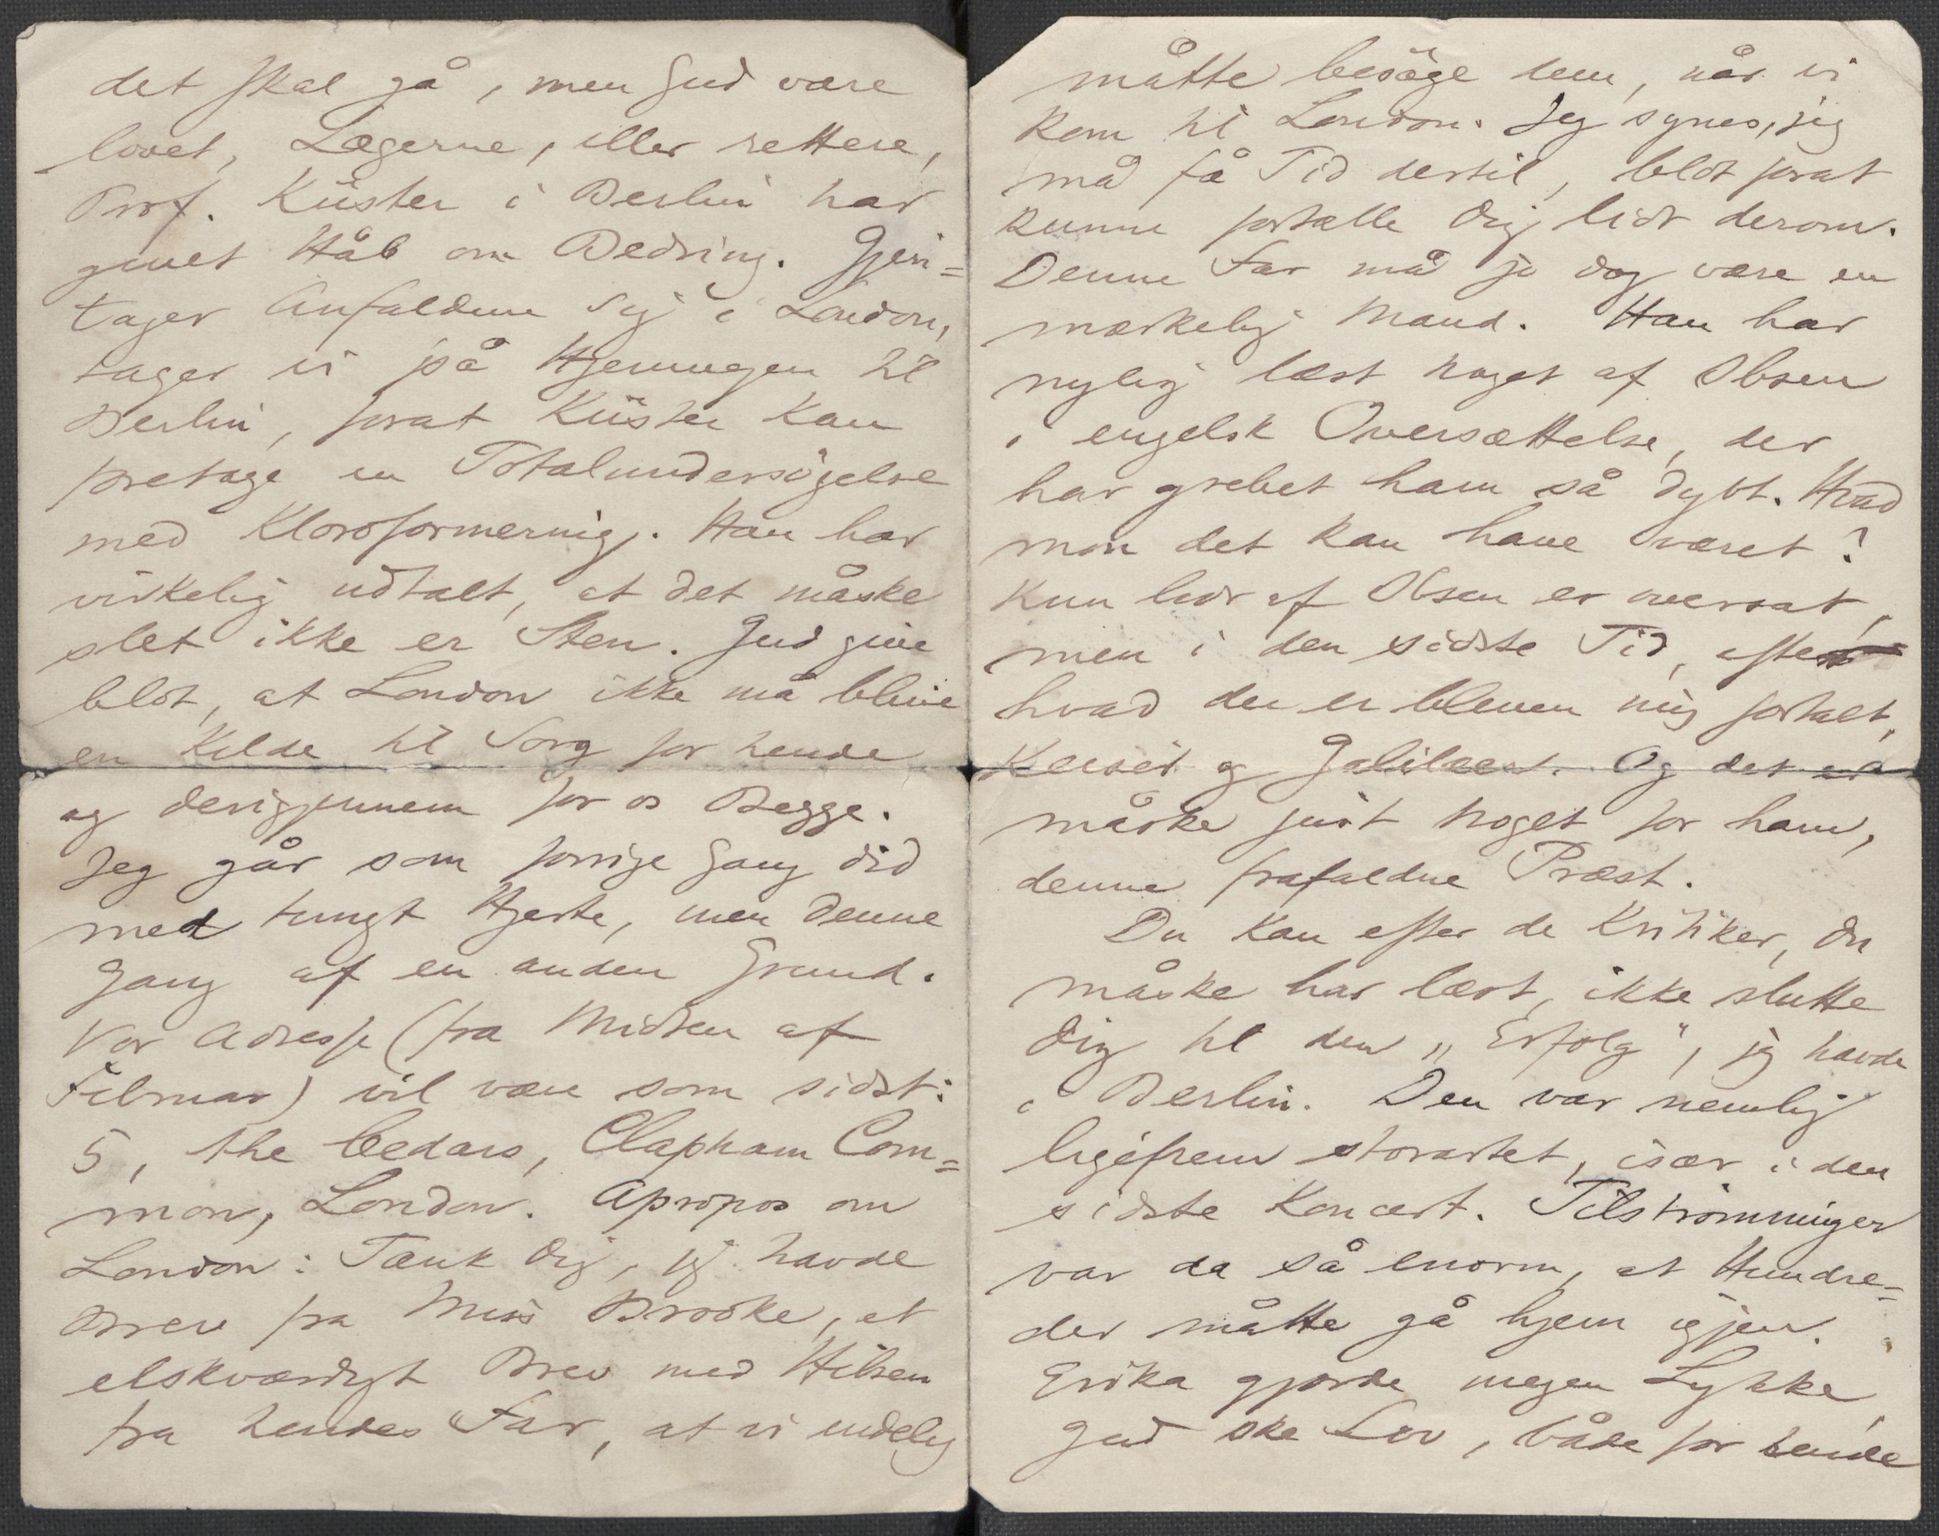 det skal gå, men Gud være
lovet, Lægerne, eller rettere,
Prof. Küster i Berlin har
givet Håb om Bedring. Gjen=
tager Anfaldene sig i London,
tager vi på Hjemvegen til
Berlin, forat Küster kan
foretage en Totalundersøgelse
med Kloroformering. Han har
virkelig udtalt, at det måske
slet ikke er Sten. Gud give
blot, at London ikke må blive
en Kilde til Sorg for hende
og derigjennem for os Begge.
Jeg går som forrige Gang did
med tungt Hjerte, men denne
Gang af en anden Grund.
Vor Adresse (fra Midten af
Februar) vil være som sidst:
5, the Cedars, Clapham Com=
mon, London. Apropos om
London: Tænk Dig, jeg havde
Brev fra Miss Brooke, et
elskværdigt Brev med Hilsen
fra hendes Far, at vi endelig
måtte besöge dem, når vi
kom til London. Jeg synes, jeg
må få Tid dertil, blot forat
kunne fortælle Dig lidt derom.
Denne Far må jo dog være en
mærkelig Mand. Han har
nylig læst noget af Ibsen
i engelsk Oversættelse, der
har grebet ham så dybt. Hvad
mon det kan have været?
Kun lidt af Ibsen er oversat,
men i den sidste Tid, efter
hvad der er bleven mig fortalt,
Keiser og Galilæer. Og det er
måske just noget for ham,
denne frafaldne Præst.
Du kan efter de Kritiker, Du
måske har læst, ikke slutte
Dig til den „Erfolg", jeg havde
i Berlin. Den var nemlig
ligefrem storartet, især i den
sidste Koncert. Tilströmningen
var da så enorm, at Hundre=
der måtte gå hjem igjen.
Erika gjorde megen Lykke,
Gud ske Lov, både for hende